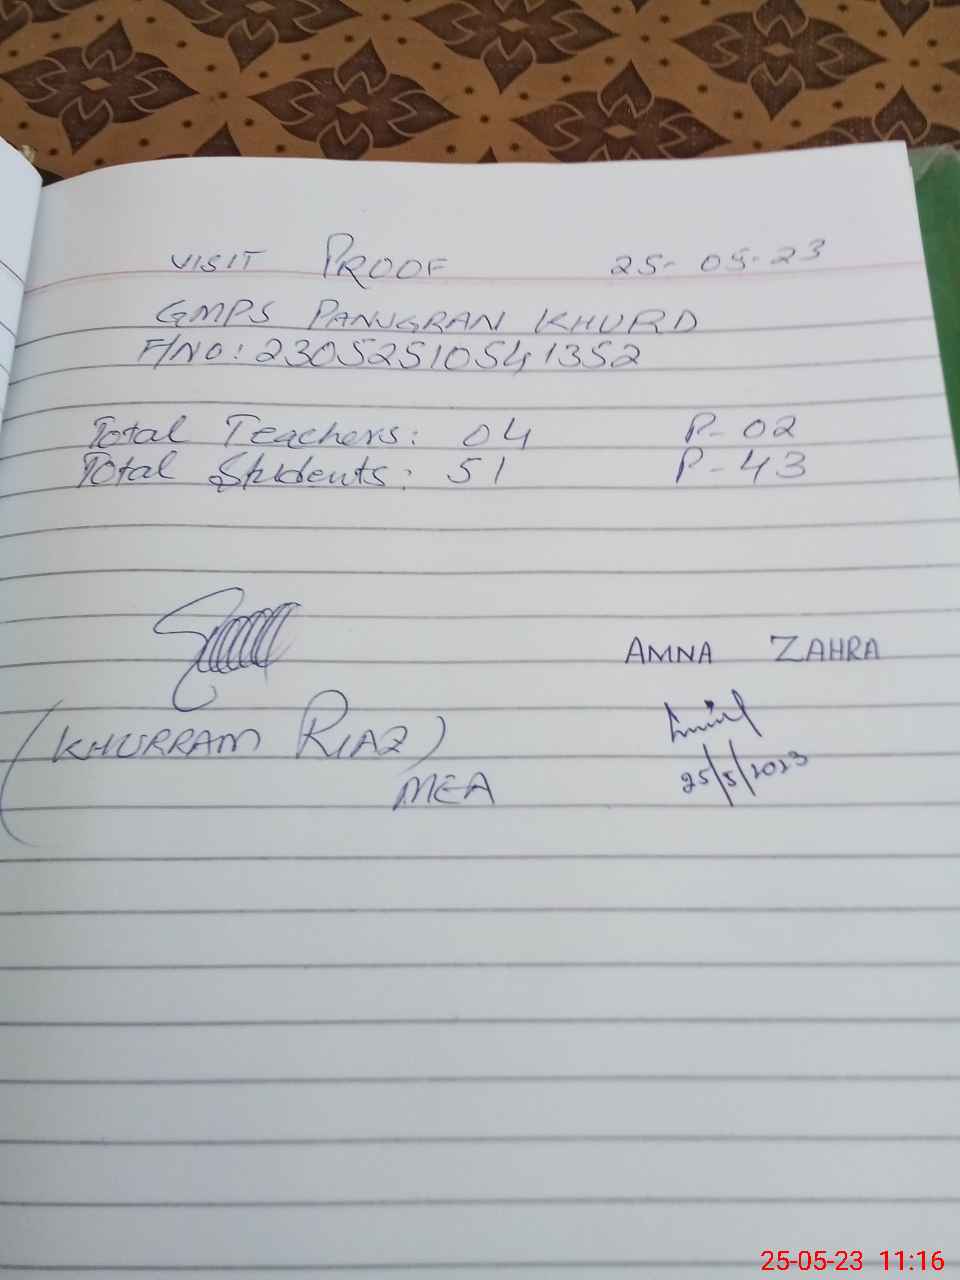 VISIT PROOF 25-05-23
GMPS PANJGRAN KHURD
F/NO: 23052510541352
Total Teachers: 04 P-02
Total Students: 51 P-43
AMNA ZAHRA
(KHURRAM RIAZ)
25/5/2023
MEA
25-05-23 11:16